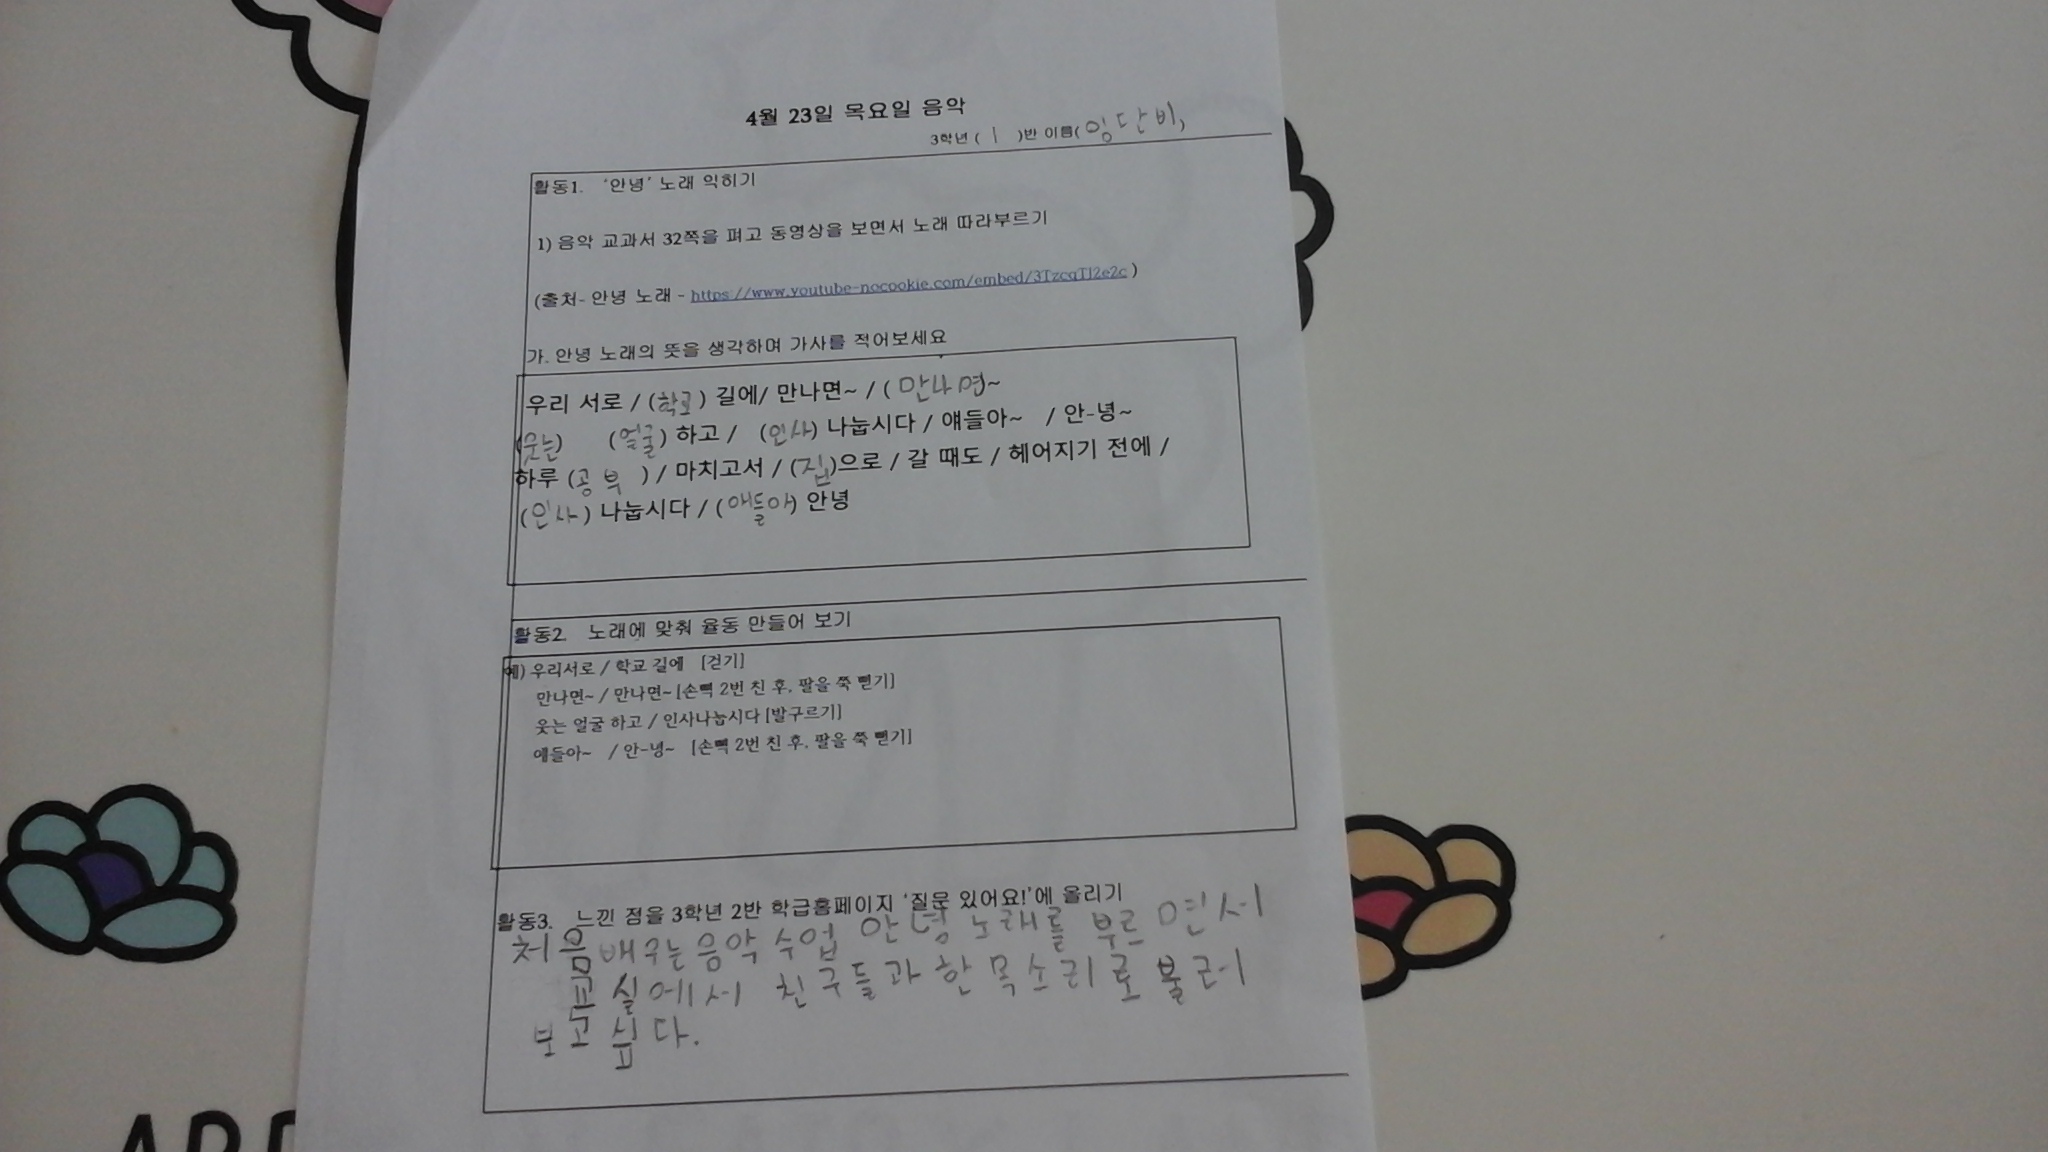 4월 23일 목요일 음악
3학년 ( 1 )반 이름( 임단비)
활동1. '안녕' 노래 익히기
1) 음악 교과서 32쪽을 펴고 동영상을 보면서 노래 따라부르기
(출처- 안녕 노래 - https://www.youtube-nocookie.com/embed/3TzcqTJ2e2c )
가. 안녕 노래의 뜻을 생각하며 가사를 적어보세요
우리 서로 / (학교) 길에/ 만나면~ / ( 만나면~
(웃는) (얼굴) 하고 / (인사) 나눕시다 / 얘들아~ / 안-녕~
하루 (공부 ) / 마치고서 / (집)으로 / 갈 때도 / 헤어지기 전에 /
(인사) 나눕시다 / (애들아) 안녕
활동2. 노래에 맞춰 율동 만들어 보기
예) 우리서로 / 학교 길에 [걷기]
만나면~ / 만나면~ [손뼉 2번 친 후, 팔을 쭉 뻗기]
웃는 얼굴 하고 / 인사나눕시다 [발구르기]
얘들아~ / 안-녕~ [손뼉 2번 친 후, 팔을 쭉 뻗기]
활동3. 느낀 점을 3학년 2반 학급홈페이지 '질문 있어요!'에 올리기
처음 배우는 음악 수업 안녕 노래를 부르면서
교실에서 친구들과 한 목소리로 불러
보고 싶다.